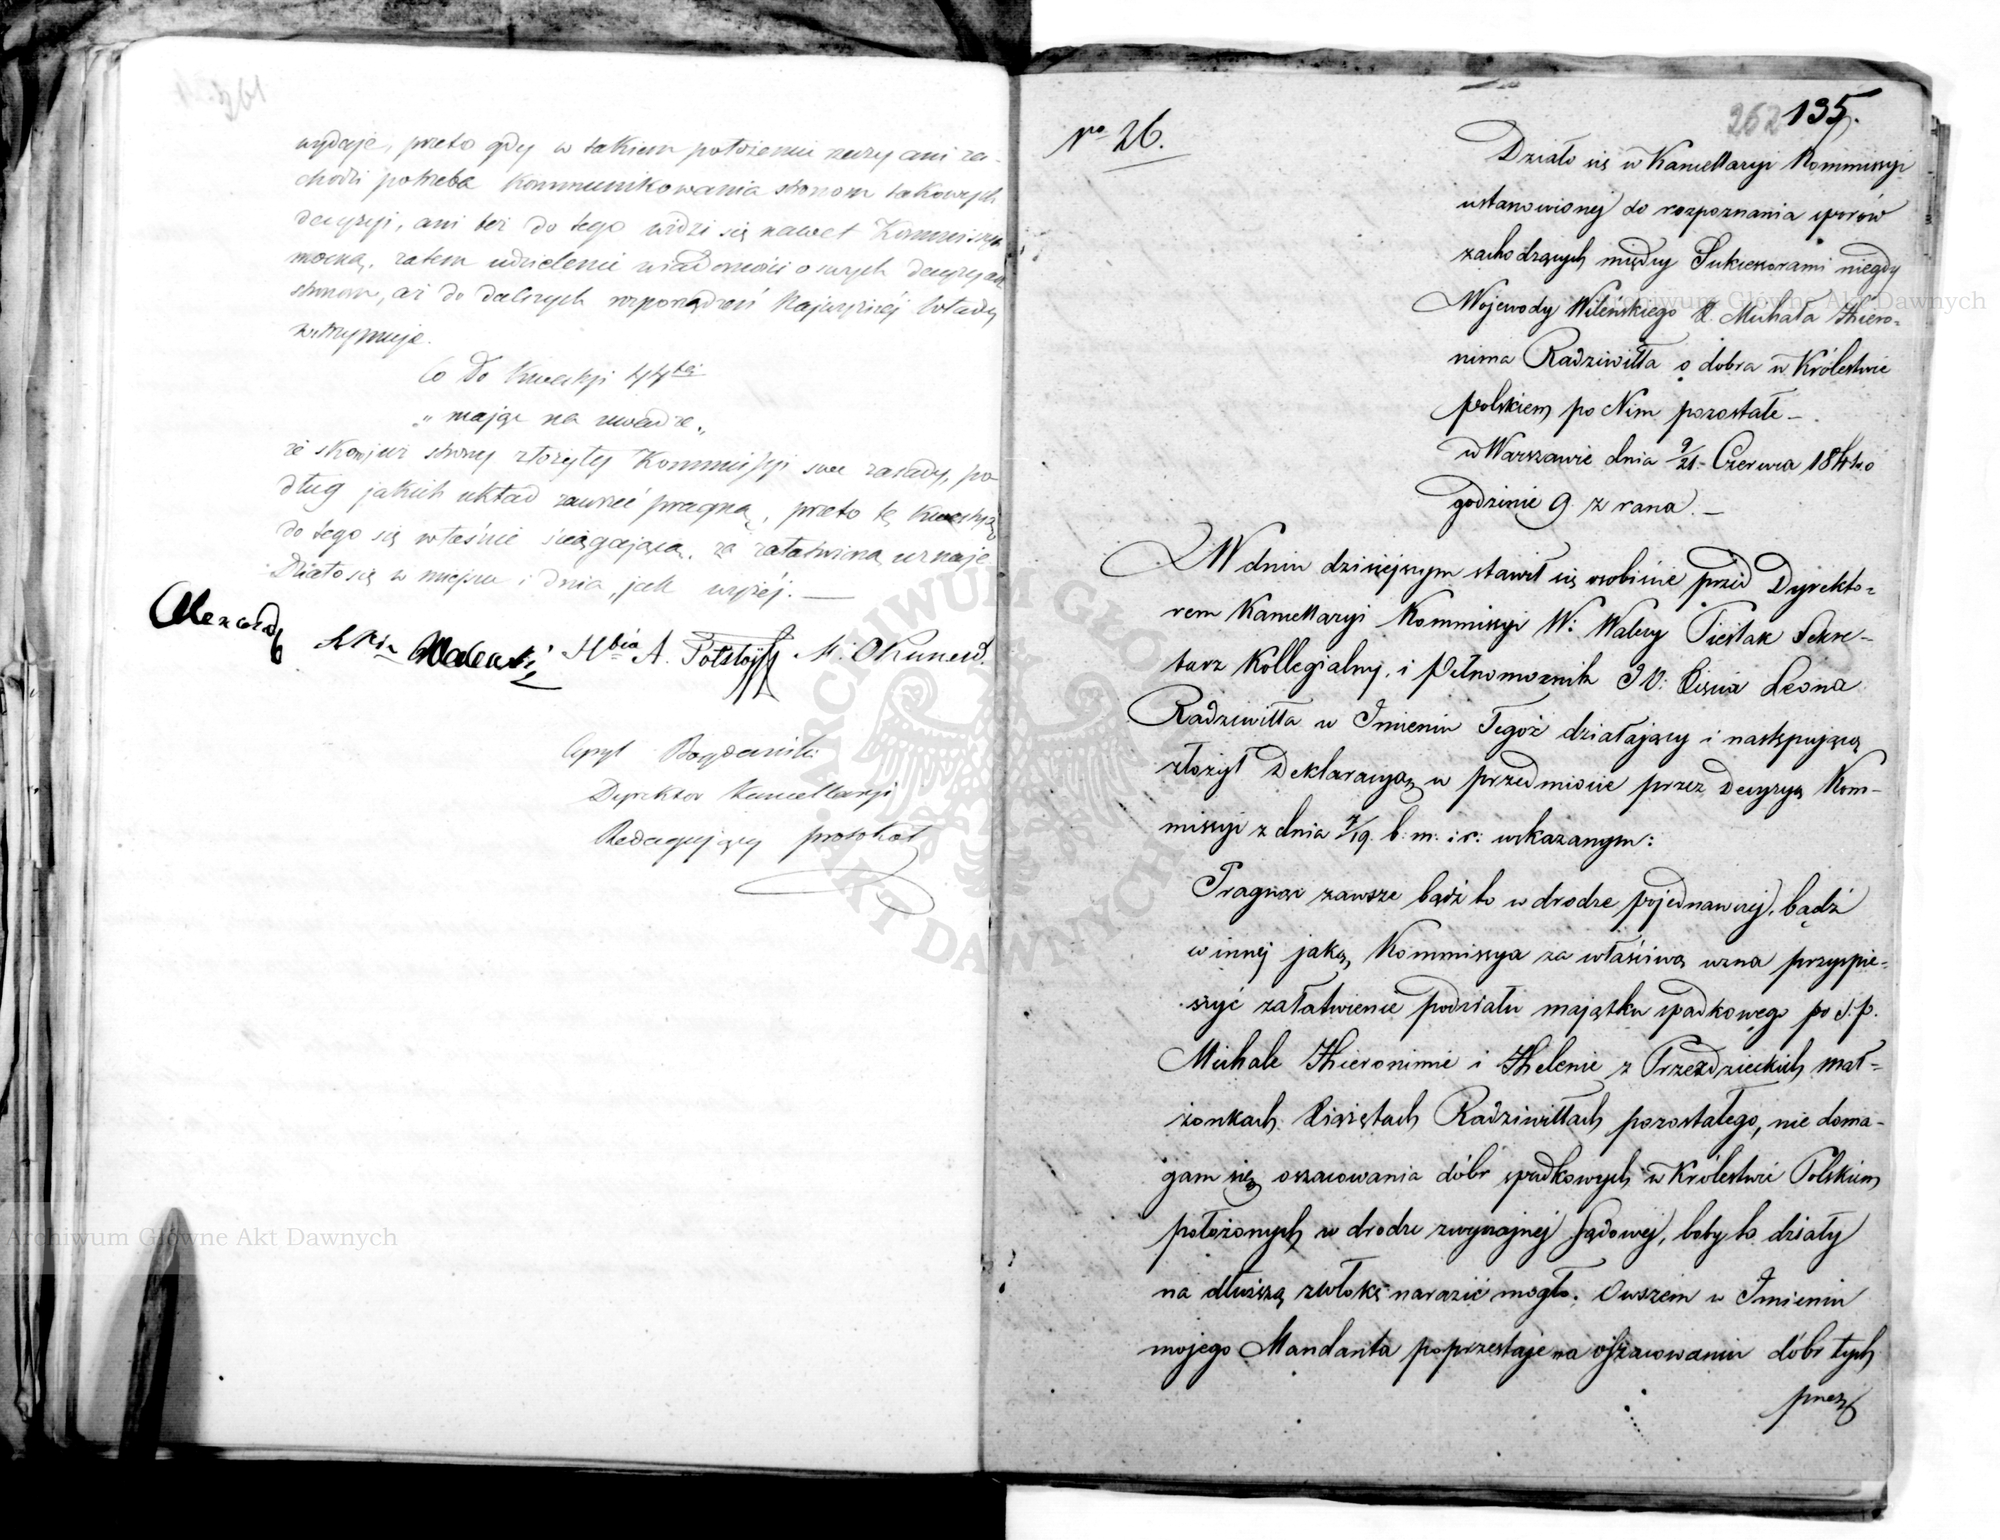 wydaje, przeto gdy w takiem położeniu rzeczy ani za-
chodzi potrzeba kommunikowania stronom takowych
decyzyi, ani też do tego widzi się nawet Kommissya
mocną, zatem udzielenie wiadomości o swych decyzyach
stronom, aż do dalszych rozporządzeń Najwyższej Władzy
wstrzymuje.
Co do Kwestyi 44tej
„mając na uwadze„
że skoro już strony złożyły Kommissyi swe zasady, po-
dług jakich układ zawrzeć pragną, przeto tę kwestyą
do tego się właśnie ściągającą, za załatwioną uznaje
Działo się w miejscu i dniu, jak wyżej. —
Hbia A. Tołstoy M. Okunew.
Dyrektor Kancellaryi
Redagujący protokół
262 135.
No 26.
Działo się w Kancellaryi Kommissyi
ustanowionej do rozpoznania sporów
zachodzących między Sukcessorami niegdy
Wojewody Wileńskiego X. Michała Hiero-
nima Radziwiłła o dobra w Królestwie
polskiem po Nim pozostałe —
w Warszawie dnia 9/21 Czerwca 1844 o
godzinie 9 z rana. —
W dniu dzisiejszym stawił się osobiście przed Dyrekto-
rem Kancellaryi Kommissyi W: Walery Pieślak Sekre-
tarz Kollegialny, i Pełnomocnik JO: Xięcia Leona
Radziwiłła w Imieniu Tegoż działający i następującą
złożył Deklaracyą w przedmiocie przez Decyzyą Kom-
missyi z dnia 7/19. b: m: i r: wskazanym:
Pragnąc zawsze bądź to w drodze pojednawczej, bądź
w innej jaką Kommissya za właściwą uzna przyspie-
szyć załatwienie podziału majątku spadkowego po ś. p.
Michale Hieronimie i Helenie z Przezdzieckich mał-
żonkach Xiążętach Radziwiłłach pozostałego, nie doma-
gam się oszacowania dóbr spadkowych w Królestwie Polskiem
położonych w drodze zwyczajnej sądowej, boby to działy
na dłuższą zwłokę narazić mogło. Owszem w Imieniu
mojego Mandanta poprzestaję na oszacowaniu dóbr tych
przez
Archiwum Główne Akt Dawnych
Archiwum Główne Akt Dawnych
ARCHIWUM GŁÓWNE AKT DAWNYCH